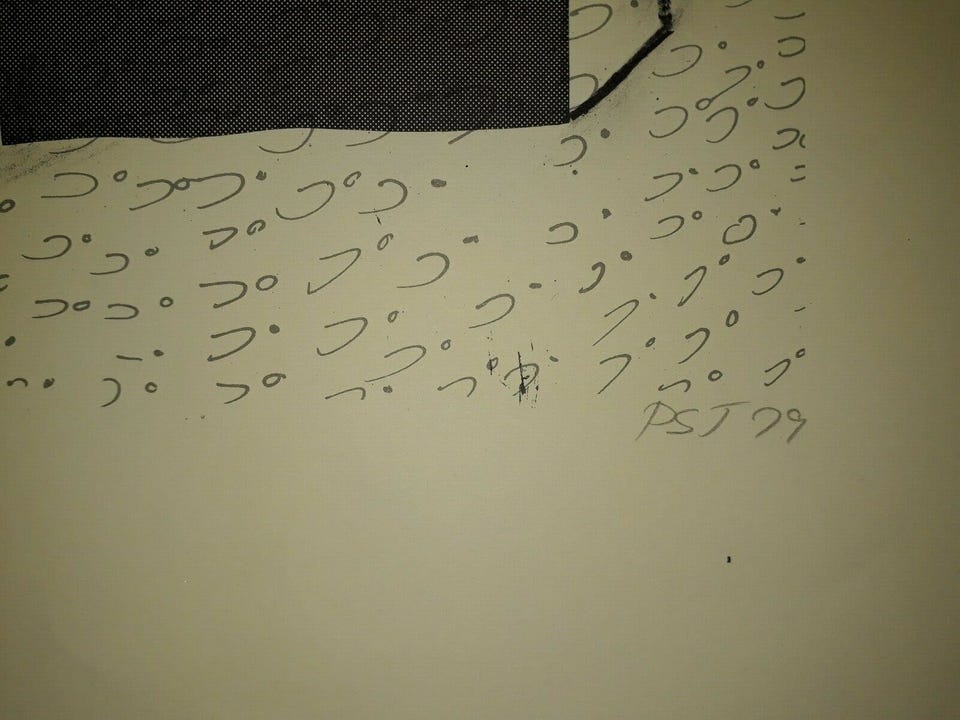 PST 79